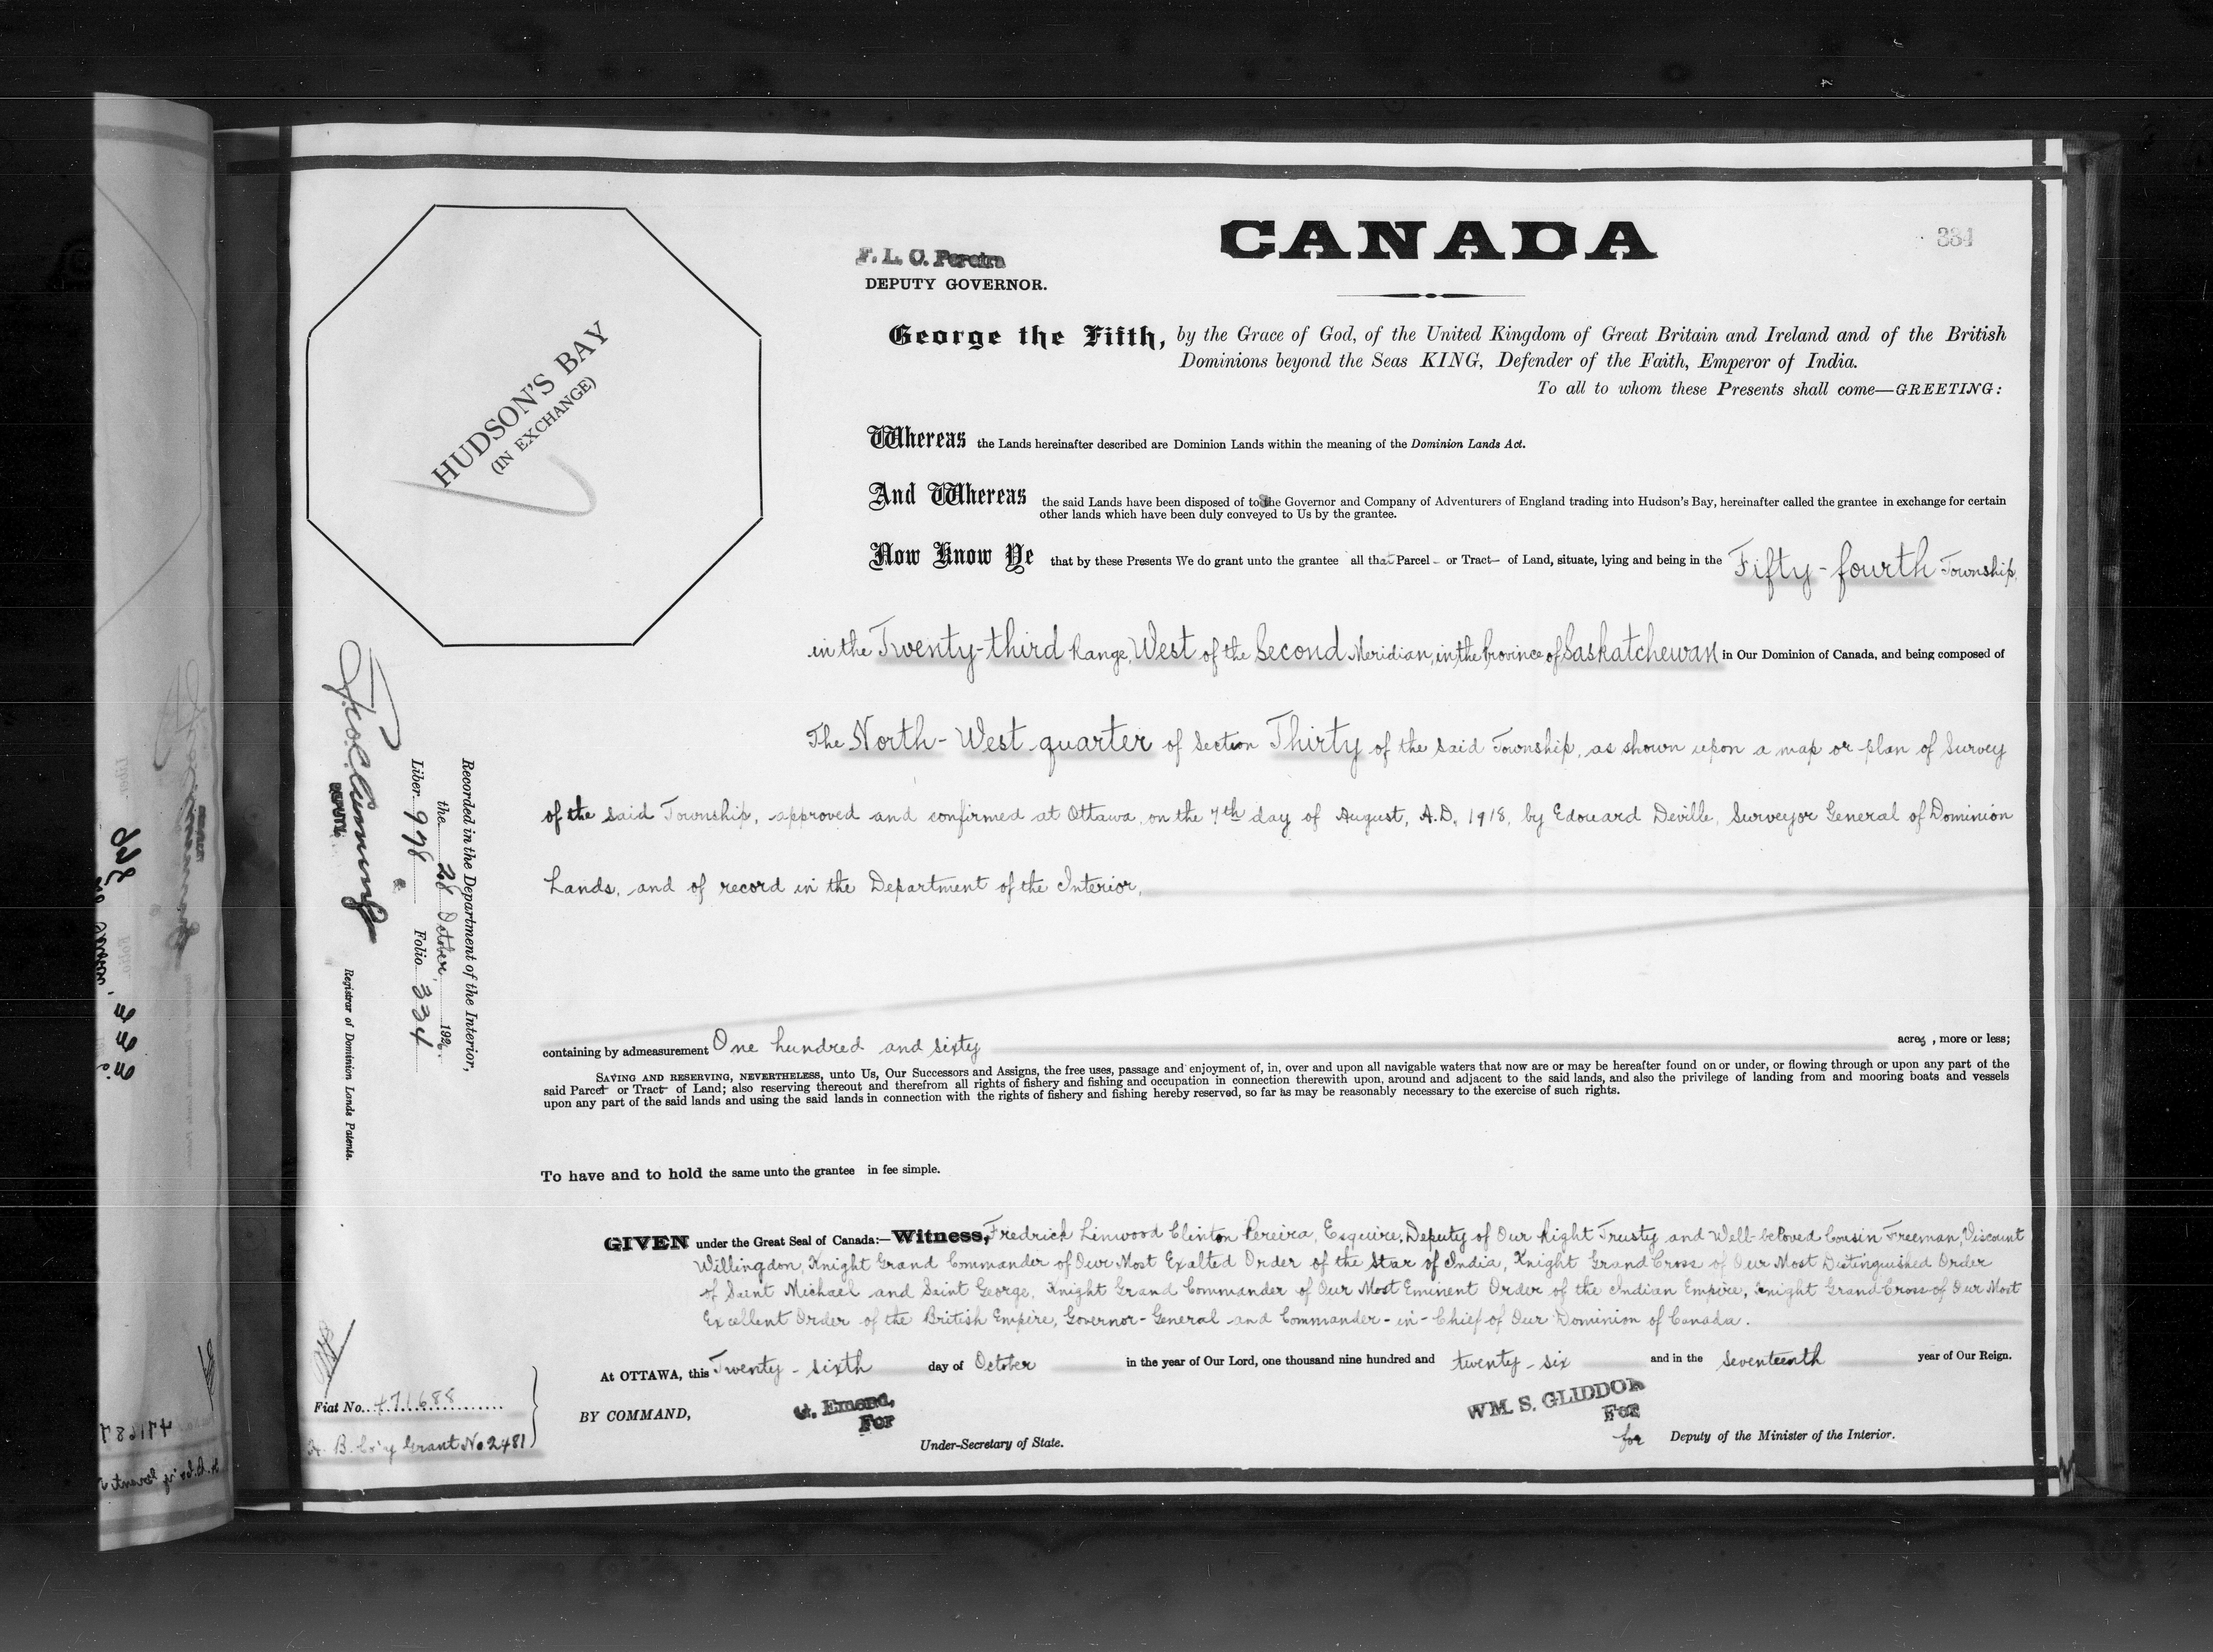 CANADA
334
F. L. C. Pereira
DEPUTY GOVERNOR.
HUDSON'S BAY
(IN EXCHANGE)
George the Fifth, by the Grace of God, of the United Kingdom of Great Britain and Ireland and of the British
Dominions beyond the Seas KING, Defender of the Faith, Emperor of India.
To all to whom these Presents shall come—GREETING:
Whereas the Lands hereinafter described are Dominion Lands within the meaning of the Dominion Lands Act.
And Whereas the said Lands have been disposed of to the Governor and Company of Adventurers of England trading into Hudson's Bay, hereinafter called the grantee in exchange for certain
other lands which have been duly conveyed to Us by the grantee.
Now Know Ye that by these Presents We do grant unto the grantee all that Parcel or Tract of Land, situate, lying and being in the Fifty-fourth Township,
in the Twenty-third Range, West of the Second Meridian, in the Province of Saskatchewan in Our Dominion of Canada, and being composed of
The North-West quarter of Section Thirty of the said Township, as shown upon a map or plan of Survey
of the said Township, approved and confirmed at Ottawa, on the 7th day of August, A.D. 1918, by Edouard Deville, Surveyor General of Dominion
Lands, and of record in the Department of the Interior,
containing by admeasurement One hundred and sixty acres, more or less;
SAVING AND RESERVING, NEVERTHELESS, unto Us, Our Successors and Assigns, the free uses, passage and enjoyment of, in, over and upon all navigable waters that now are or may be hereafter found on or under, or flowing through or upon any part of the
said Parcel or Tract of Land; also reserving thereout and therefrom all rights of fishery and fishing and occupation in connection therewith upon, around and adjacent to the said lands, and also the privilege of landing from and mooring boats and vessels
upon any part of the said lands and using the said lands in connection with the rights of fishery and fishing hereby reserved, so far as may be reasonably necessary to the exercise of such rights.
To have and to hold the same unto the grantee in fee simple.
GIVEN under the Great Seal of Canada:—Witness, Fredrick Linwood Clinton Pereira, Esquire, Deputy of Our Right Trusty and Well-beloved Cousin Freeman, Viscount
Willingdon, Knight Grand Commander of Our Most Exalted Order of the Star of India, Knight Grand Cross of Our Most Distinguished Order
of Saint Michael and Saint George, Knight Grand Commander of Our Most Eminent Order of the Indian Empire, Knight Grand Cross of Our Most
Excellent Order of the British Empire, Governor-General and Commander-in-Chief of Our Dominion of Canada.
At OTTAWA, this Twenty-sixth day of October in the year of Our Lord, one thousand nine hundred and twenty-six and in the Seventeenth year of Our Reign.
BY COMMAND,
G. Emond,
For
Under-Secretary of State.
WM. S. GLIDDON
For
for Deputy of the Minister of the Interior.
Recorded in the Department of the Interior,
the 28 October 1926.
Liber 978 Folio 334
DEPUTY
Registrar of Dominion Lands Patents.
Fiat No. 471688
H. B. Co'y Grant No 2481